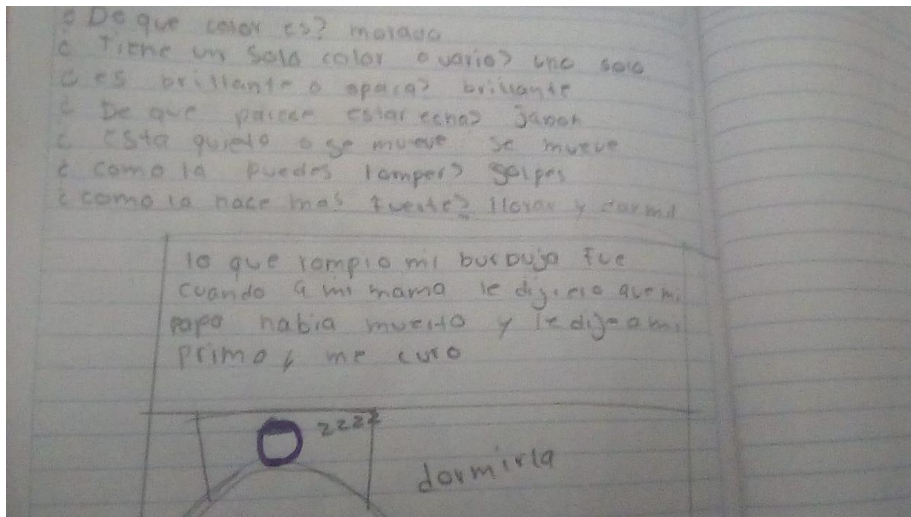 ¿ De que color es? morada
¿ Tiene un solo color o varios? uno solo
¿ es brillante o opaca? brillante
¿ De que parece estar echa? Jabon
¿ Esta quieto o se mueve se mueve
¿ como la puedes romper? golpes
¿ como la hace mas fuerte? llorar y dormir
lo que rompio mi burbuja fue
cuando a mi mama le dijiero que mi
papa habia muerto y le dije a mi
primo y me curo
zzzz
dormirla